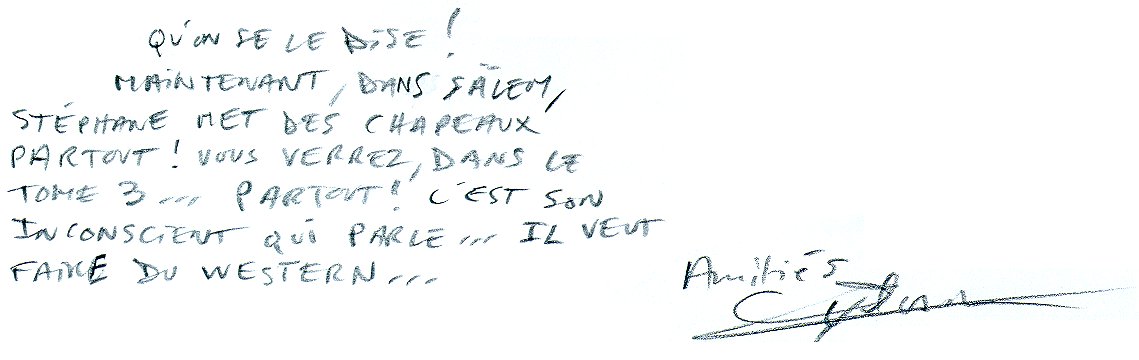 QU'ON SE LE DISE !
MAINTENANT, DANS SÄLEM,
STÉPHANE MET DES CHAPEAUX
PARTOUT ! VOUS VERREZ, DANS LE
TOME 3... PARTOUT ! C'EST SON
INCONSCIENT QUI PARLE... IL VEUT
FAIRE DU WESTERN...
Amitiés